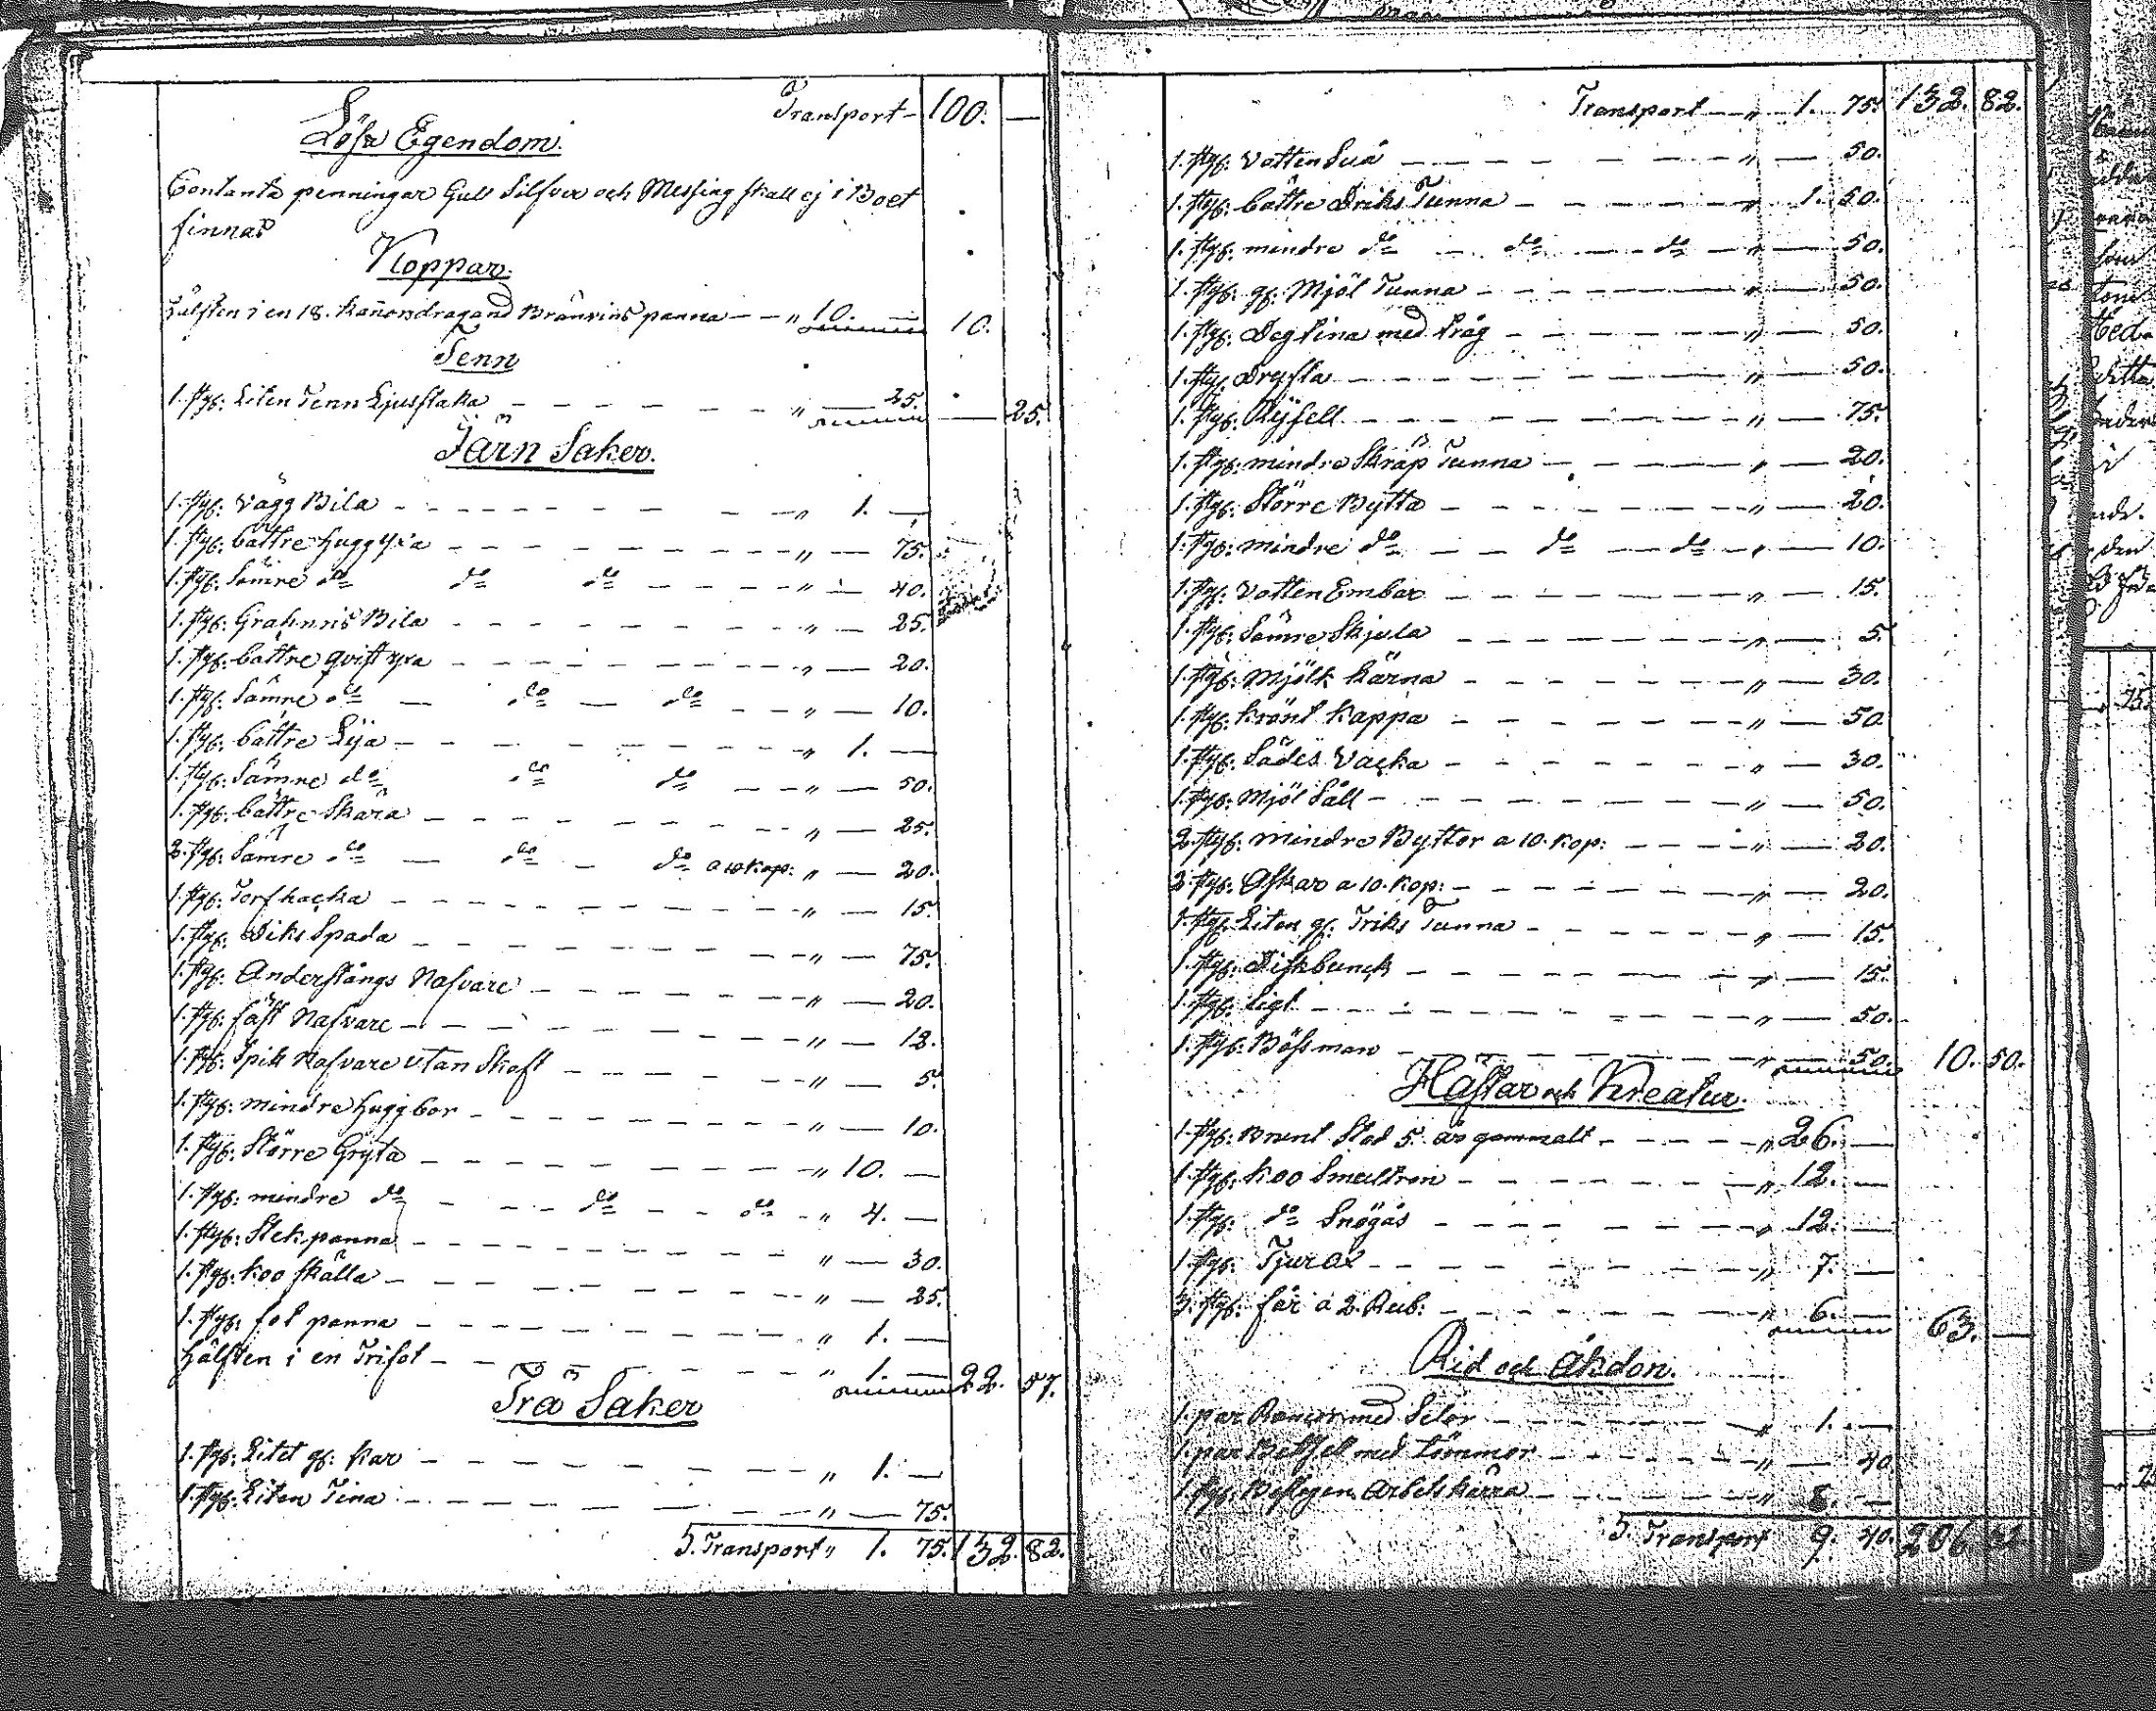 Transport - 100. —
Lösa Egendom.
Contanta penningar Gull Silfver och Messing skall ej i Boet
finnas
Koppar.
hälften i en 18. kan̄ors dragand Bränvins panna — — „ 10. — 10.
Tenn
1. styf: Liten Tenn Ljusstaka — „ — 25. — 25.
Järn Saker.
1. styf: vägg Bila — „ 1. —
1. styf: bättre huggyxa — „ — 75.
1. styf: Sämre do do do — „ — 40.
1. styf: Grahnris Bila — „ — 25.
1. styf: battre qvist yxa — „ — 20.
1. styf: Sämre do — do — do — „ — 10.
1. styf: bättre Lya — „ 1. —
1. styf: Sämre do do do — „ — 50.
1. styf: bättre Skära — „ — 25.
2. styf: Sämre do — do — do a 10 kop: „ — 20.
1. styf: Torfhacka — „ — 15.
1. styf: Diks Spada — „ — 75.
1. styf: Anderstångs Nafvare — „ — 20.
1. styf: fäst Nafvare — „ — 12.
1. styf: Spik Nafvare utan Skaft — „ — 5.
1. styf: mindre huggbor — „ — 10.
1. styf: Större Gryta — „ 10. —
1. styf: mindre do — do — do „ 4. —
1. styf: Stekpanna — „ — 30.
1. styf: koo skälla — „ — 25.
1. styf: fot panna — „ 1. —
hälften i en Trifot — „ 1. — 22. 57.
Trä Saker
1. styf: Litet gf: kar — „ 1. —
1. styf: Liten Tina — „ — 75.
S. Transport „ 1. 75. 132. 82.
Transport — „ 1. 75. 132. 82.
1. styf: vatten Suå — „ — 50.
1. styf: bättre Driks Tunna — „ 1. 50.
1. styf: mindre do — do — do — „ — 50.
1. styf: gf: Mjöl Tunna — „ — 50.
1. styf: Deg tina med tråg — „ — 50.
1. styf: Dryfla — „ — 50.
1. styf: Ryfell — „ — 75.
1. styf: mindre Skräp Tunna — „ — 20.
1. styf: Större Bytta — „ — 20.
1. styf: mindre do — do — do — „ — 10.
1. styf: vatten Embar — „ — 15.
1. styf: Sämre Skjula — „ — 5.
1. styf: Mjölk kärna — „ — 30.
1. styf: krönt kappa — „ — 50.
1. styf: Sädes Vacka — „ — 30.
1. styf: Mjöl Såll — „ — 50.
2. styf: mindre Byttor a 10. kop: — „ — 20.
2. styf: Askar a 10. kop: — „ — 20.
1. styf: Liten gf: Triks Tunna — „ — 15.
1. styf: Diskbunck — „ — 15.
1. styf: ligt — „ — 50.
1. styf: Bössman — „ — 50. 10. 50.
Hästar och Kreatur.
1. styf: Brunt Stod 5. år gammalt — „ 26. —
1. styf: koo Smultron — „ 12. —
1. styf: do Snögås — „ 12. —
1. styf: Tjurox — „ 7. —
3. styf: får a 2. Rub: — „ 6. — 63. —
Rid och Åkdon.
1. par med Selor — „ 1. —
1. par Betsel med tömmor — „ — 40.
1. styf: Beslagen Arbetskärra — „ 8. —
S. Transport 9. 40. 206.